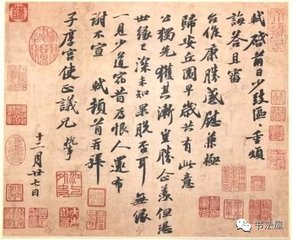 軾啓前日少致區區重煩
誨答且審
台候康勝感慰兼極
歸安丘園早歲共有此意
公獨先獲其漸豈勝企羨但恐
世緣已深未知果脫否耳無緣
一見少道宿昔為恨人還布
謝不宣 軾頓首再拜
子厚宮使正議兄執事
十二月廿七日
书法屋